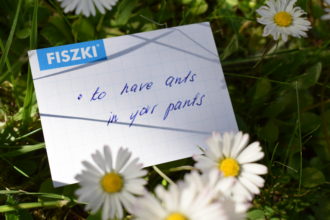 FISZKI
• to have ants
in your pants